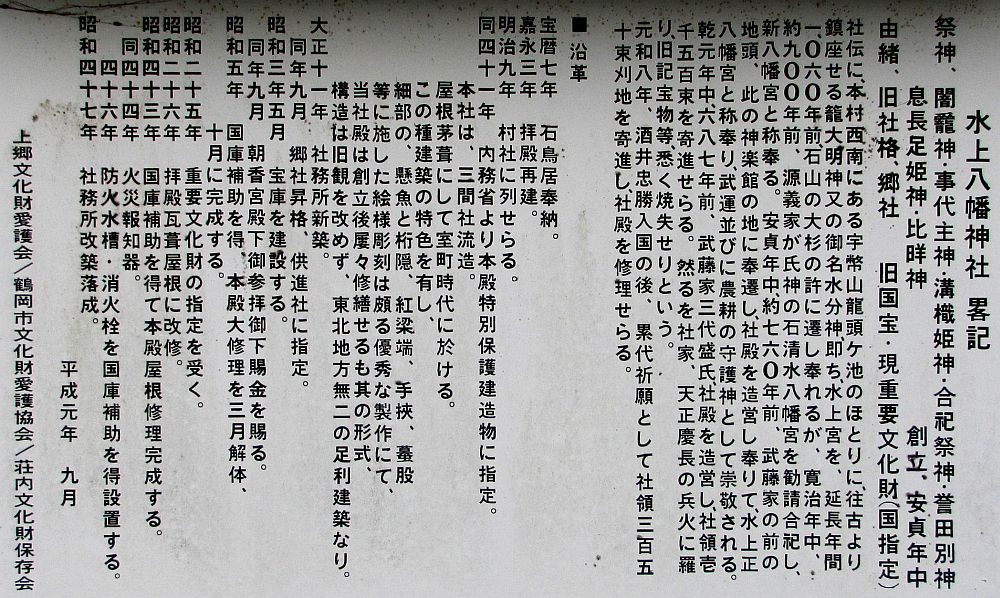 水上八幡神社 畧記
祭神、闇龗神・事代主神・溝樴姫神・合祀祭神・誉田別神
息長足姫神・比咩神
創立、安貞年中
由緒、旧社格、郷社 旧国宝・現重要文化財(国指定)
社伝に、本村西南にある字幣山龍頭ケ池のほとりに往古より
鎮座せる龍大明神又の御名水分神、即ち水上宮を、延長年間
一、〇六〇年前、石山の大杉の許に遷し奉れるが、寛治年中、
約九〇〇年前、源義家が氏神の石清水八幡宮を勧請合祀し、
新八幡宮と称奉る。安貞年中約七六〇年前、武藤家の前の
地頭、此の神楽館の地に奉遷し、社殿を造営し奉りて水上正
八幡宮と称奉り、武運並びに農耕の守護神として崇敬される。
乾元年中六八七年前、武藤家三代盛氏社殿を造営し、社領壱
千五百束を寄進せらる。然るを社家、天正慶長の兵火に羅
り、旧記宝物等悉く焼失せりという。
元和八年、酒井忠勝入国の後、累代祈願として社領三百五
十束刈地を寄進し社殿を修理せらる。
■沿革
宝暦七年 石鳥居奉納。
嘉永三年 拝殿再建。
明治九年 村社に列せらる。
同四十一年 内務省より本殿特別保護建造物に指定。
本社は、三間社流造。
屋根茅葺にして室町時代に於ける。
この種建築の特色を有し、
細部の、懸魚と桁隠、紅梁端、手挾、蟇股
等に施した絵様彫刻は頗る優秀な製作にて、
当社殿は創立後屡々修繕せるも其の形式、
構造は旧観を改めず、東北地方無二の足利建築なり。
大正十一年 社務所新築。
同年九月 郷社昇格、供進社に指定。
昭和三年五月 宝庫を建設する。
同年九月 朝香宮殿下御参拝御下賜金を賜る。
昭和五年 国庫補助を得、本殿大修理を三月解体、
十月に完成する。
昭和二十五年 重要文化財の指定を受く。
昭和二十六年 拝殿瓦葺屋根に改修。
昭和四十三年 国庫補助を得て本殿屋根修理完成する。
同四十四年 火災報知器。
四十六年 防火水槽・消火栓を国庫補助を得設置する。
昭和四十七年 社務所改築落成。
平成元年 九月
上郷文化財愛護会/鶴岡市文化財愛護協会/荘内文化財保存会